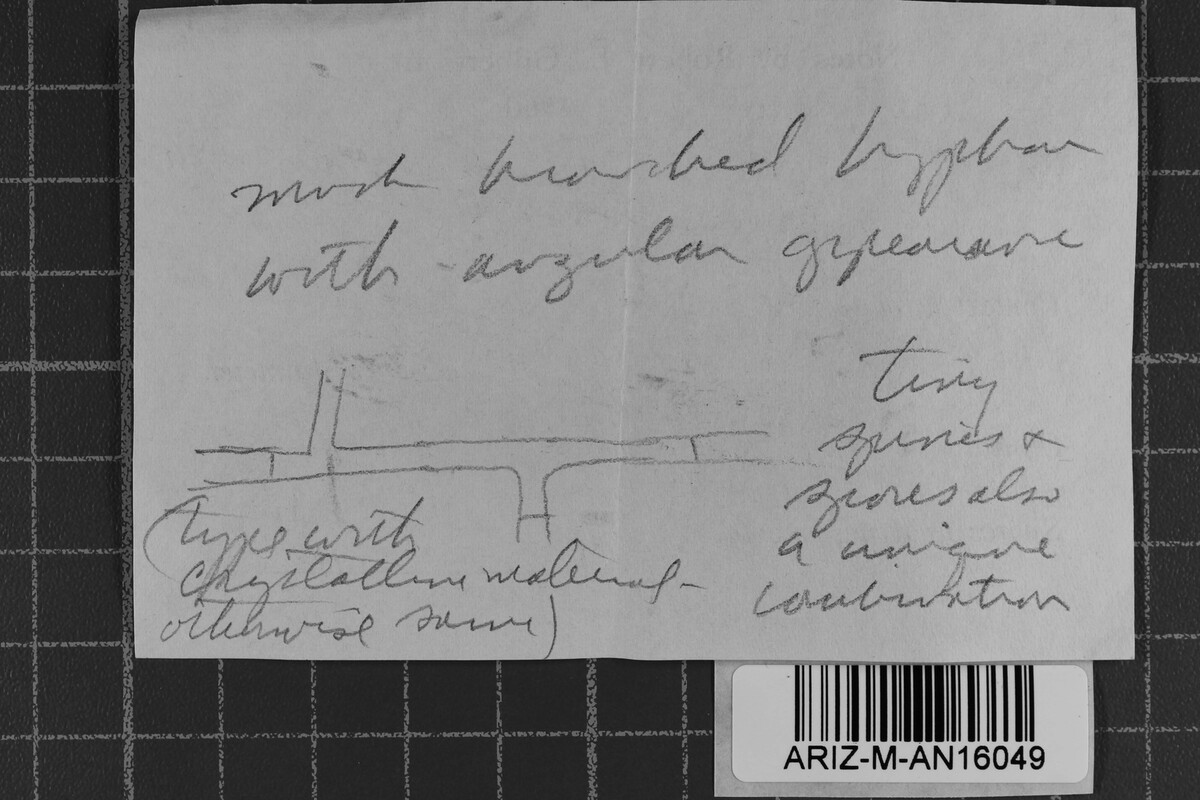 much branched hyphae
with angular appearance
tiny
spines &
spores also
a unique
combination
(type with
crystalline material -
otherwise same)
ARIZ-M-AN16049